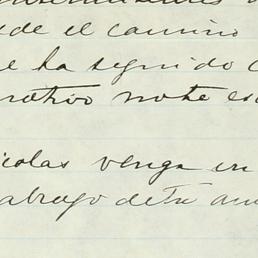 de el camino
e ha seguido
motivo note es
icolas venga en
abrazo de tu am